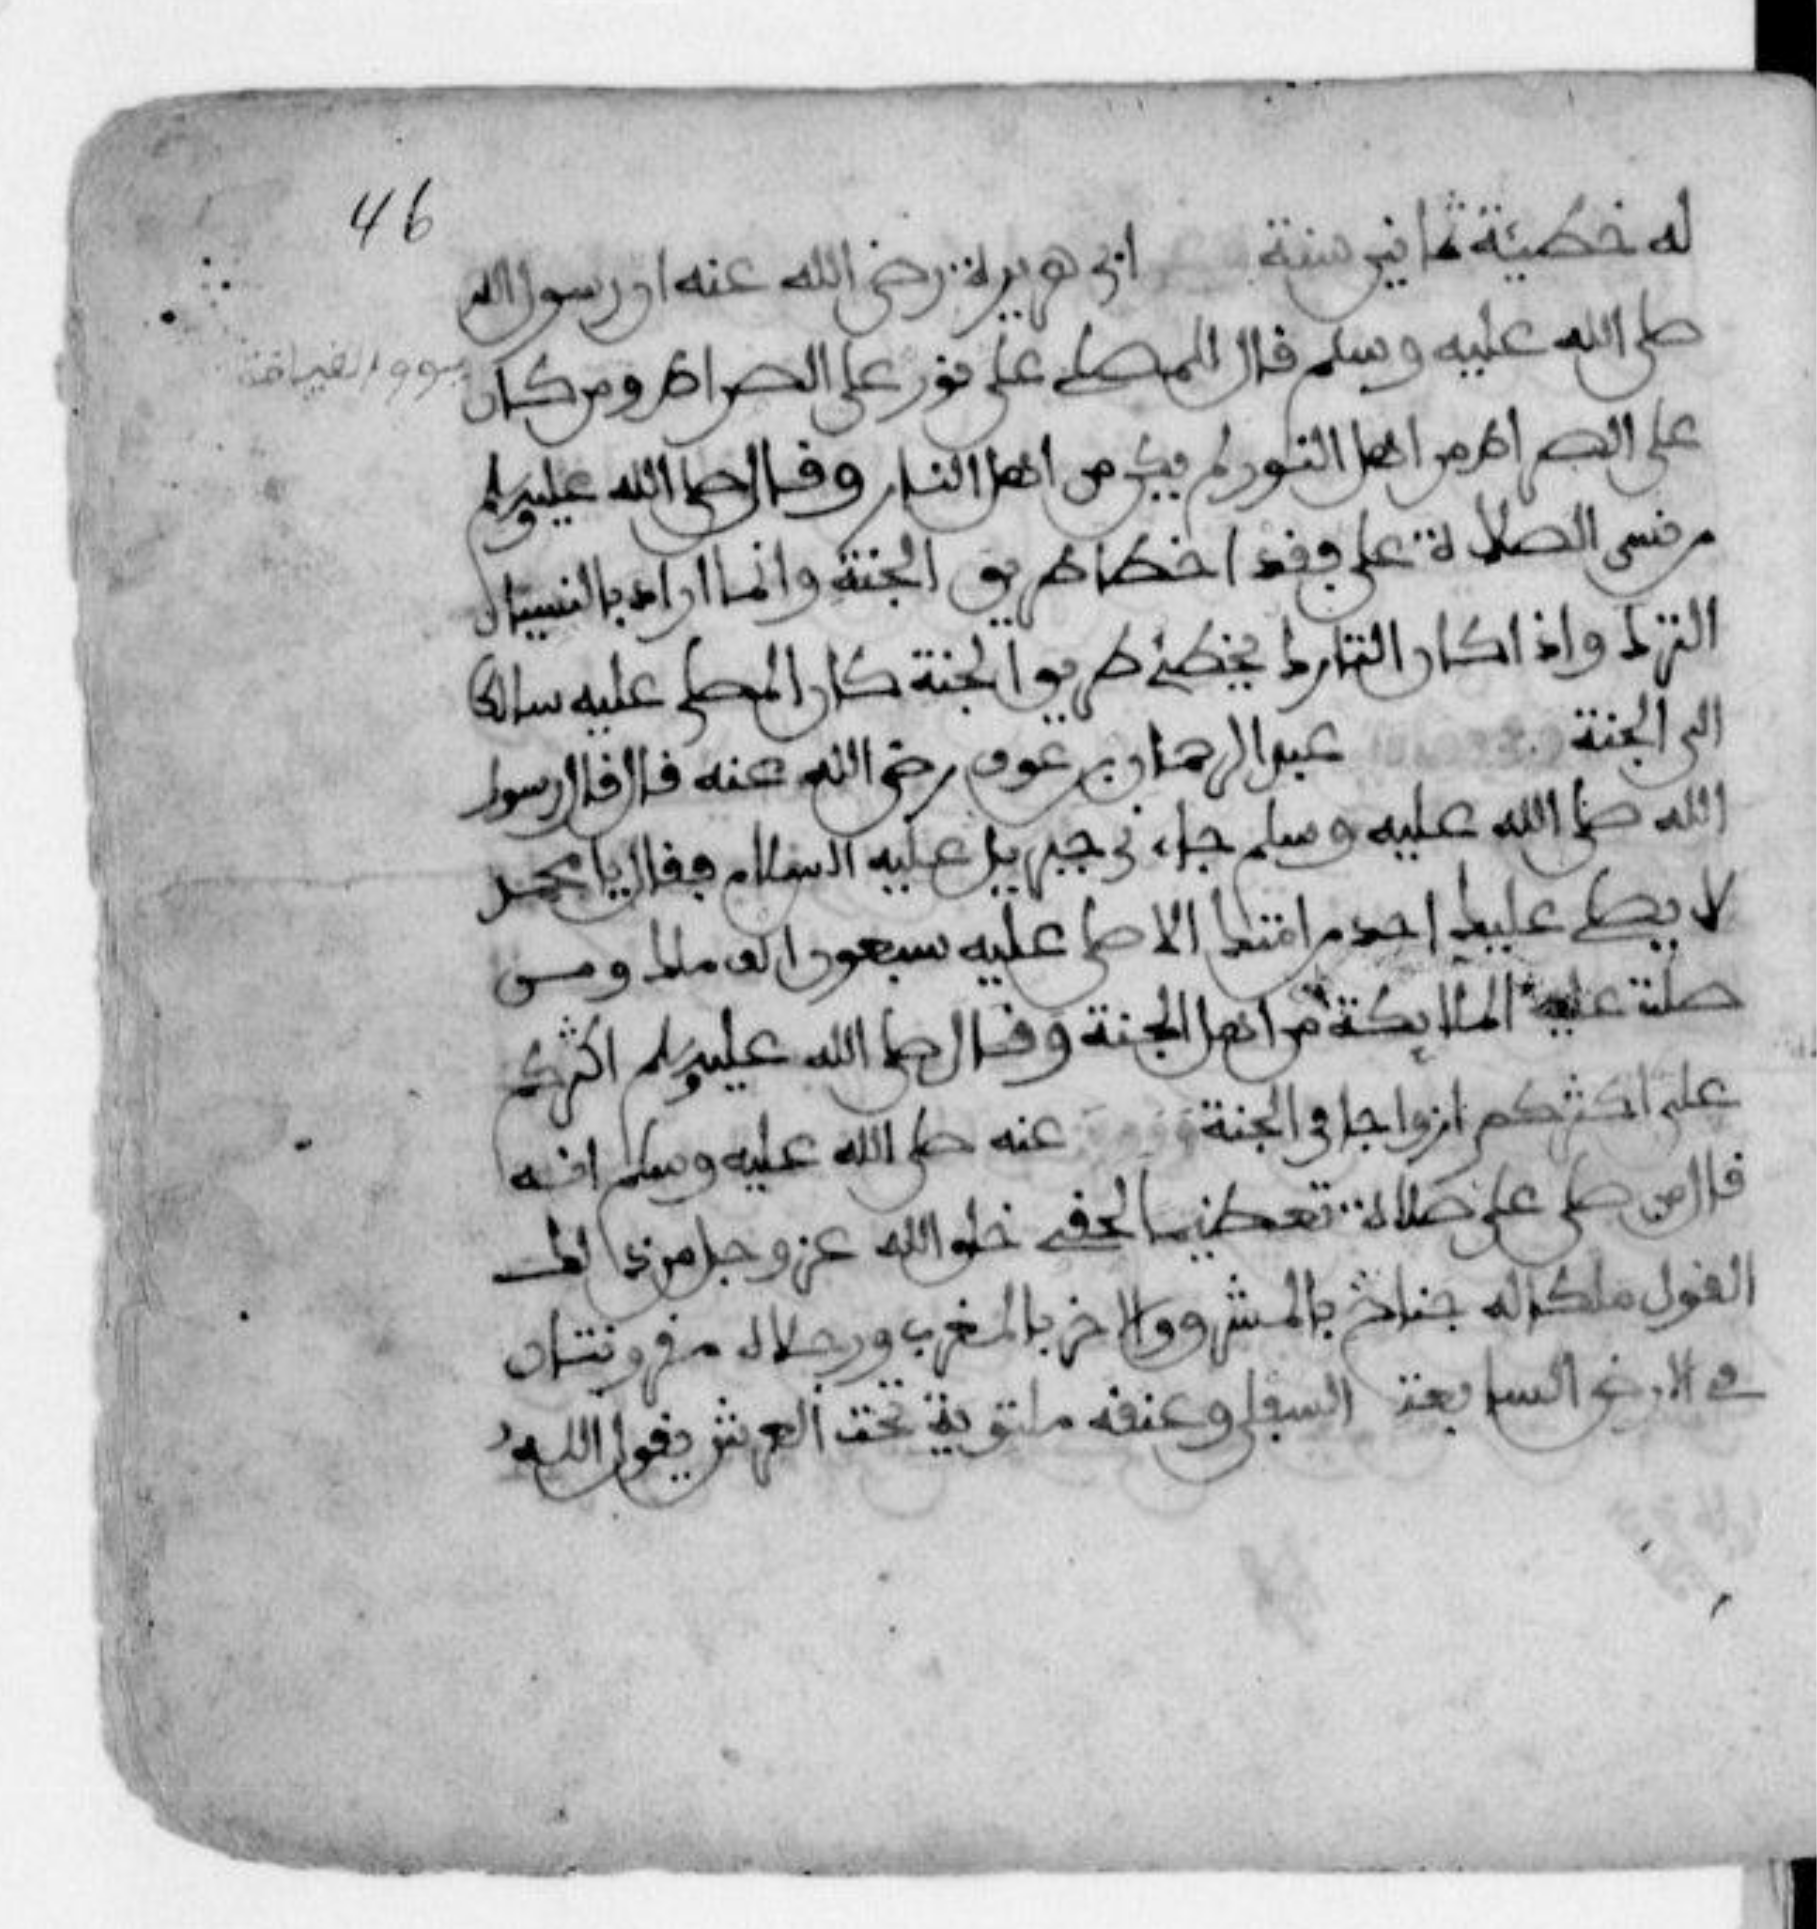 46
له خطيئة ثمانين سنة ابي هريرة رضي الله عنه ان رسول الله
صلى الله عليه وسلم قال للمصلي علي نور على الصراط ومن كان
على الصراط من اهل النور لم يكن من اهل النار وقال صلى الله عليه وسلم
من نسي الصلاة علي فقد اخطا طريق الجنة وانما اراد بالنسيان
الترك واذا كان التارك يخطئ طريق الجنة كان المصلي عليه سالكا
الى الجنة عبد الرحمان بن عوف رضي الله عنه قال قال رسول
الله صلى الله عليه وسلم جاءني جبريل عليه السلام فقال يا محمد
لا يصلي عليك احد من امتك الا صلى عليه سبعون الف ملك ومن
صلت عليه الملائكة من اهل الجنة وقال صلى الله عليه وسلم اكثركم
علي اكثركم ازواجا في الجنة عنه صلى الله عليه وسلم انه
قال من صلى علي صلاة تعظيما لحقي خلق الله عز وجل من ذالك
القول ملكا له جناح بالمشرق والاخر بالمغرب ورجلاه مقرونتان
في الارض السابعة السفلى وعنقه ملتوية تحت العرش يقول الله